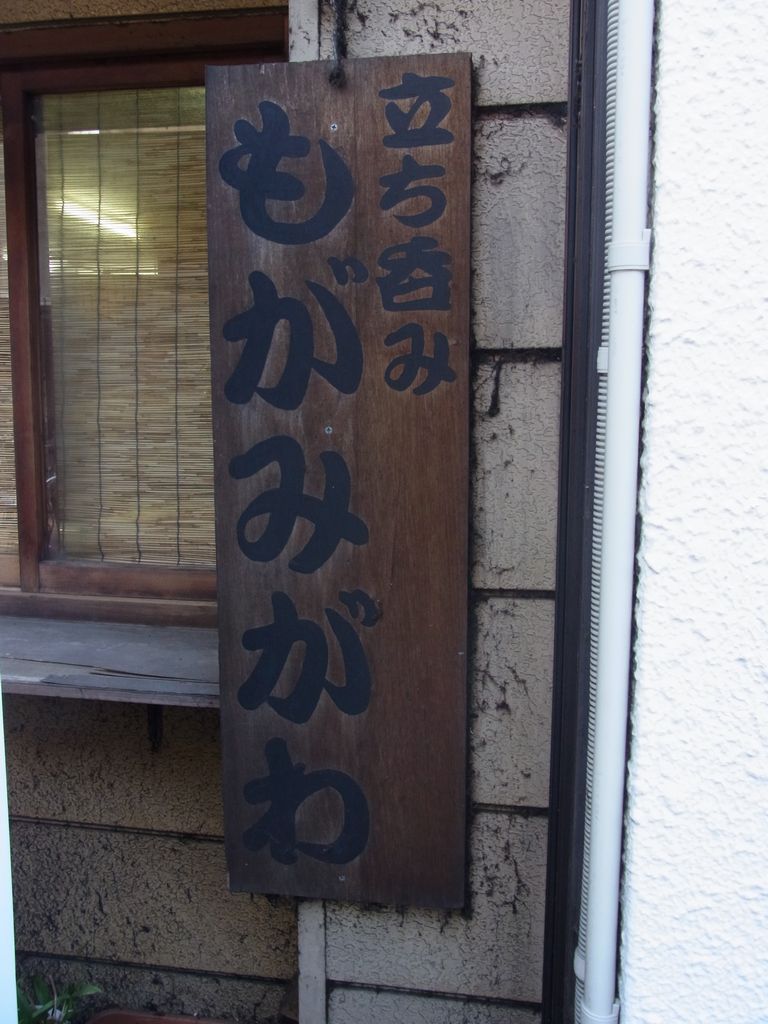 立ち呑み
もがみがわ